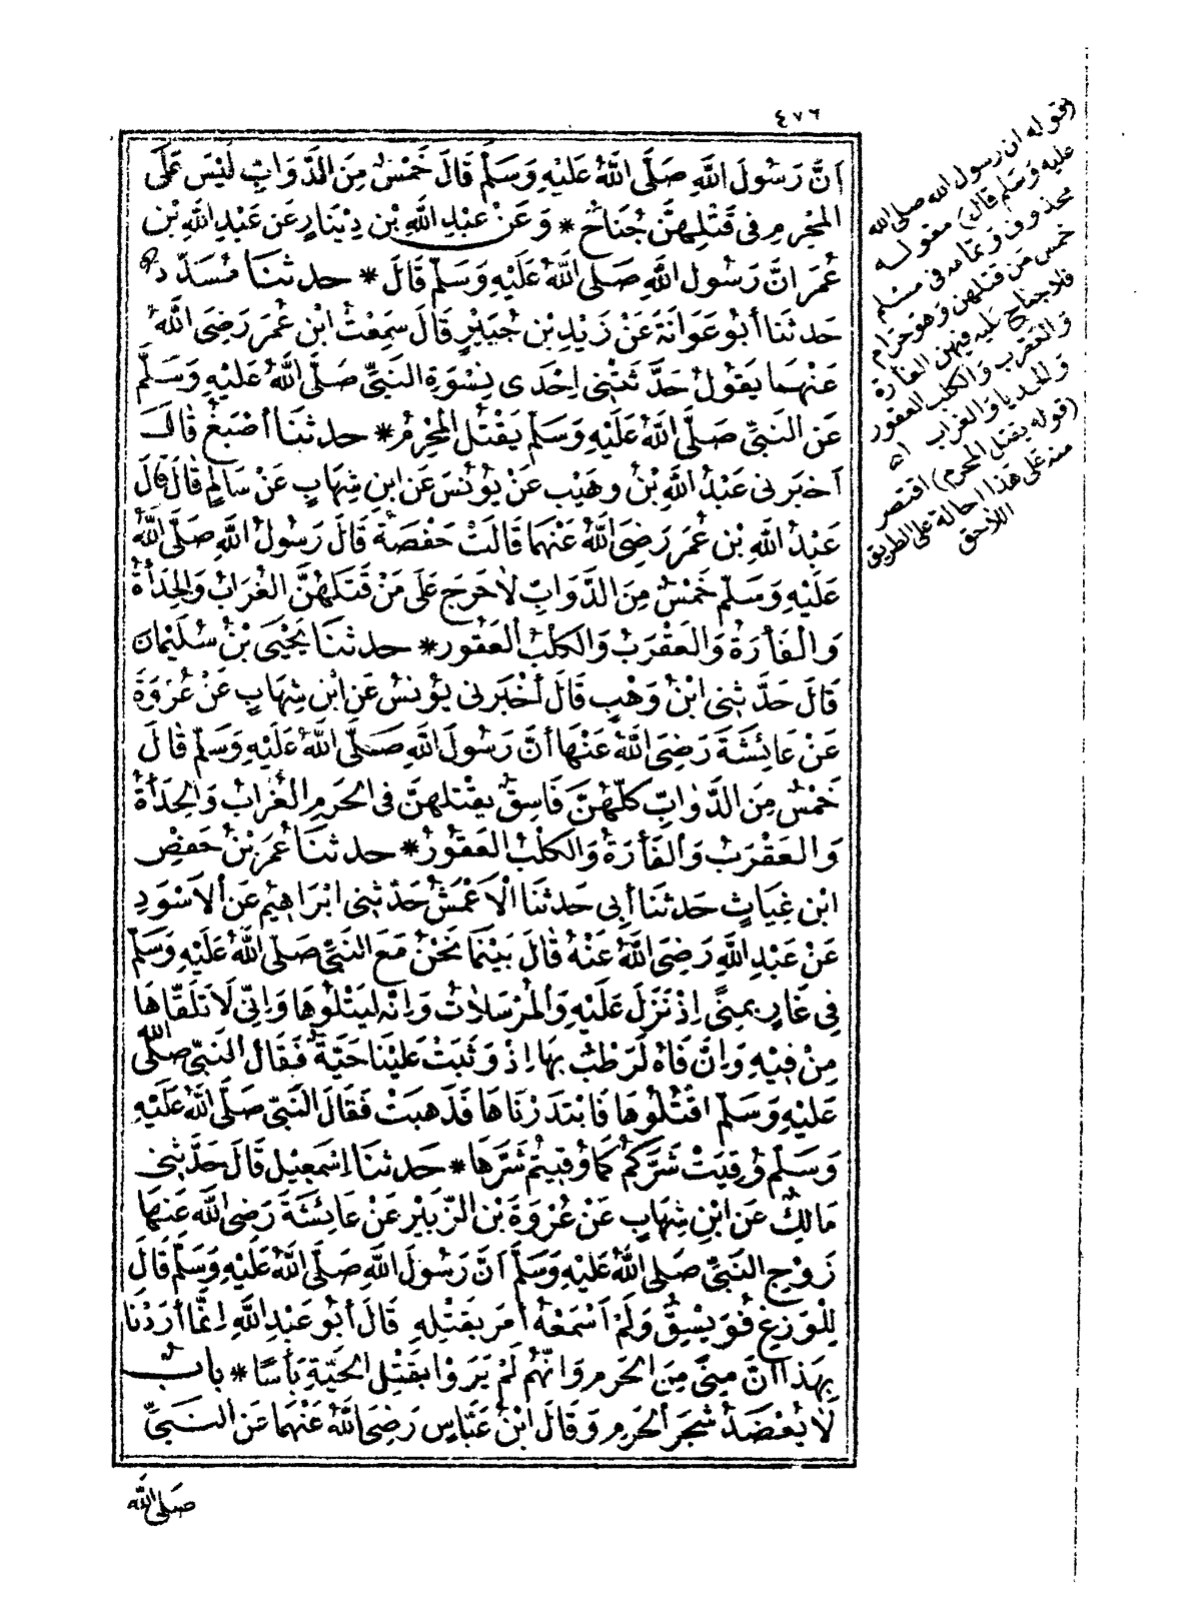 ٤٧٦
اَنَّ رَسُولَ اللَّهِ صَلَّى اللَّهُ عَلَيْهِ وَسَلَّمَ قَالَ خَمْسٌ مِنَ الدَّوَابِّ لَيْسَ عَلَى
المُحْرِمِ فِى قَتْلِهِنَّ جُنَاحٌ * وَعَنْ عَبْدِ اللَّهِ بْنِ دِينَارٍ عَنْ عَبْدِ اللَّهِ بْنِ
عُمَرَ انَّ رَسُولَ اللَّهِ صَلَّى اللَّهُ عَلَيْهِ وَسَلَّمَ قَالَ * حدثنَا مُسَدَّدٌ
حدثنَا أَبُو عَوَانَةَ عَنْ زَيْدِ بْنِ جُبَيْرٍ قَالَ سَمِعْتُ ابْنَ عُمَرَ رَضِىَ اللَّهُ
عَنْهُمَا يَقُولُ حَدَّثَتْنِى اِحْدَى نِسْوَةِ النَّبِىِّ صَلَّى اللَّهُ عَلَيْهِ وَسَلَّمَ
عَنِ النَّبِىِّ صَلَّى اللَّهُ عَلَيْهِ وَسَلَّمَ يَقْتُلُ المُحْرِمُ * حدثنَا أَصْبَغُ قَالَ
أَخْبَرَنِى عَبْدُ اللَّهِ بْنُ وهَيْبٍ عَنْ يُونُسَ عَنِ ابنِ شِهَابٍ عَنْ سَالِمٍ قَالَ قَالَ
عَبْدُ اللَّهِ بْنُ عُمَرَ رَضِىَ اللَّهُ عَنْهُمَا قَالَتْ حَفْصَةُ قَالَ رَسُولُ اللَّهِ صَلَّى اللَّهُ
عَلَيْهِ وَسَلَّمَ خَمْسٌ مِنَ الدَّوَابِّ لَا حَرَجَ عَلَى مَنْ قَتَلَهُنَّ الغُرَابُ وَالحِدَأَةُ
وَالْفَأْرَةُ وَالعَقْرَبُ وَالكَلْبُ العَقُورُ * حدثنَا يَحْيَى بْنُ سُلَيْمَانَ
قَالَ حَدَّثَنِى ابْنُ وَهْبٍ قَالَ أَخْبَرَنِى يُونُسُ عَنِ ابْنِ شِهَابٍ عَنْ عُرْوَةَ
عَنْ عَائِشَةَ رَضِىَ اللَّهُ عَنْهَا أَنَّ رَسُولَ اللَّهِ صَلَّى اللَّهُ عَلَيْهِ وَسَلَّمَ قَالَ
خَمْسٌ مِنَ الدَّوَابِّ كُلُّهُنَّ فَاسِقٌ يَقْتُلهنَّ فِى الحَرَمِ الغُرَابُ وَالحِدَأَةُ
وَالعَقْرَبُ وَالفَأْرَةُ وَالكَلْبُ العَقُورُ * حدثنَا عُمَرُ بْنُ حَفْصِ
ابْنِ غِيَاثٍ حَدثنَا أَبِى حَدثنَا الْأَعْمَشُ حَدَّثَنِى ابْرَاهِيمُ عَنِ الْأَسْوَدِ
عَنْ عَبْدِ اللَّهِ رَضِىَ اللَّهُ عَنْهُ قَالَ بَيْنَمَا نَحْنُ مَعَ النَّبِىِّ صَلَّى اللَّهُ عَلَيْهِ وَسَلَّمَ
فِى غَارٍ بِمِنًى اِذْ نَزَلَ عَلَيْهِ وَالْمُرْسَلَاتُ وَانَّهُ لَيَتْلُوهَا وَاِنِّى لَاَتَلَقَّاهَا
مِنْ فِيْهِ وَانَّ فَاهُ لَرَطْبٌ بِهَا اِذْ وَثَبَتْ عَلَيْنَا حَيَّةٌ فَقَالَ النَّبِىُّ صَلَّى اللَّهُ
عَلَيْهِ وَسَلَّمَ اقْتُلُوهَا فَابْتَدَرْنَاهَا فَذَهَبَتْ فَقَالَ النَّبِىُّ صَلَّى اللَّهُ عَلَيْهِ
وَسَلَّمَ وُقِيَتْ شَرَّكُمْ كَمَا وُقِيتُمْ شَرَّهَا * حَدثنَا اِسْمَعِيل قَالَ حَدَّثَنِى
مَالِكٌ عَنِ ابْنِ شِهَابٍ عَنْ عُرْوَةَ بْنِ الزُّبَيْرِ عَنْ عَائِشَةَ رَضِىَ اللَّهُ عَنْهَا
زَوْجِ النَّبِىِّ صَلَّى اللَّهُ عَلَيْهِ وَسَلَّمَ اَنَّ رَسُولَ اللَّهِ صَلَّى اللَّهُ عَلَيْهِ وَسَلَّمَ قَالَ
لِلْوَزَغِ فُوَيْسِقٌ وَلَمْ اَسْمَعْهُ أَمَرَ بِقَتْلِهِ قَالَ أَبُو عَبْدِ اللَّهِ اِنَّمَا أَرَدْنَا
بِهَذَا اَنَّ مِنًى مِنَ الحَرَمِ وَانَّهُمْ لَمْ يَرَوْا بِقَتْلِ الحَيَّةِ بَأْسًا * بابٌ
لَا يُعْضَدُ شَجَرُ الحَرَمِ وَقَالَ ابْنُ عَبَّاسٍ رَضِىَ اللَّهُ عَنْهُمَا عَنِ النَّبِىِّ
صَلَى اللَّهُ
(قوله ان رسول الله صلى الله
عليه وسلم قال) مقوله
محذوف وتمامه فى مسلم
خمس من قتلهن وهو حرام
فلا جناح عليه فيهن الفأرة
والعقرب والكلب العقور
والحديا والغراب اه
(قوله يقتل المحرم) اقتصر
منه على هذا احالة على الطريق
اللاحق